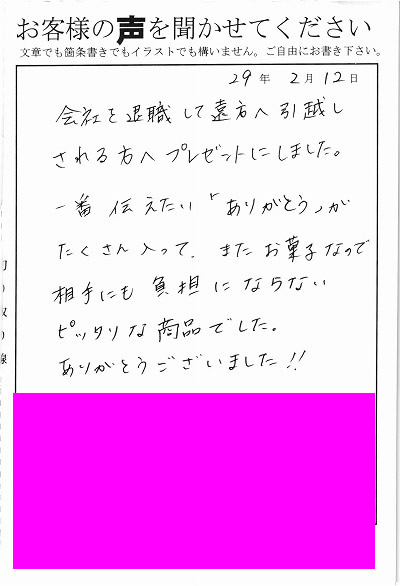 お客様の声を聞かせてください
文章でも箇条書きでもイラストでも構いません。ご自由にお書き下さい。
29年 2月 12日
会社を退職して遠方へ引越し
される方へプレゼントにしました。
一番 伝えたい「ありがとう」が
たくさん入って、またお菓子なので
相手にも負担にならない
ピッタリな商品でした。
ありがとうございました!!
切り取り線